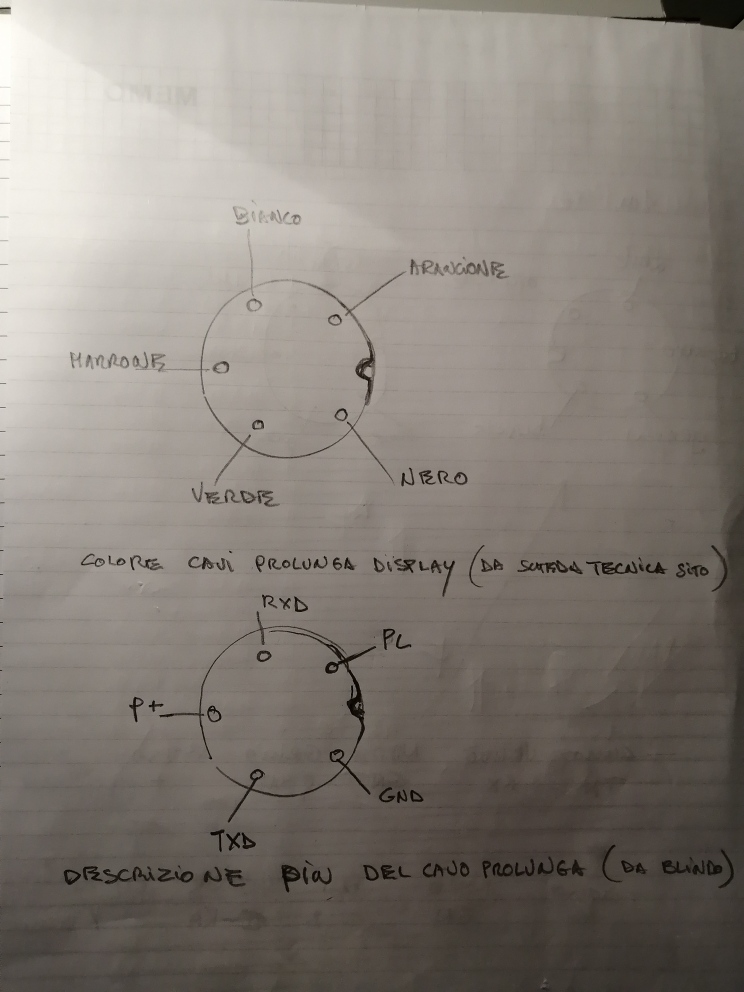 BIANCO
ARANCIONE
MARRONE
VERDE
NERO
COLORE CAVI PROLUNGA DISPLAY (DA SCHEDA TECNICA SITO)
RXD
PL
P+
GND
TXD
DESCRIZIONE PIN DEL CAVO PROLUNGA (DA BLINDO)